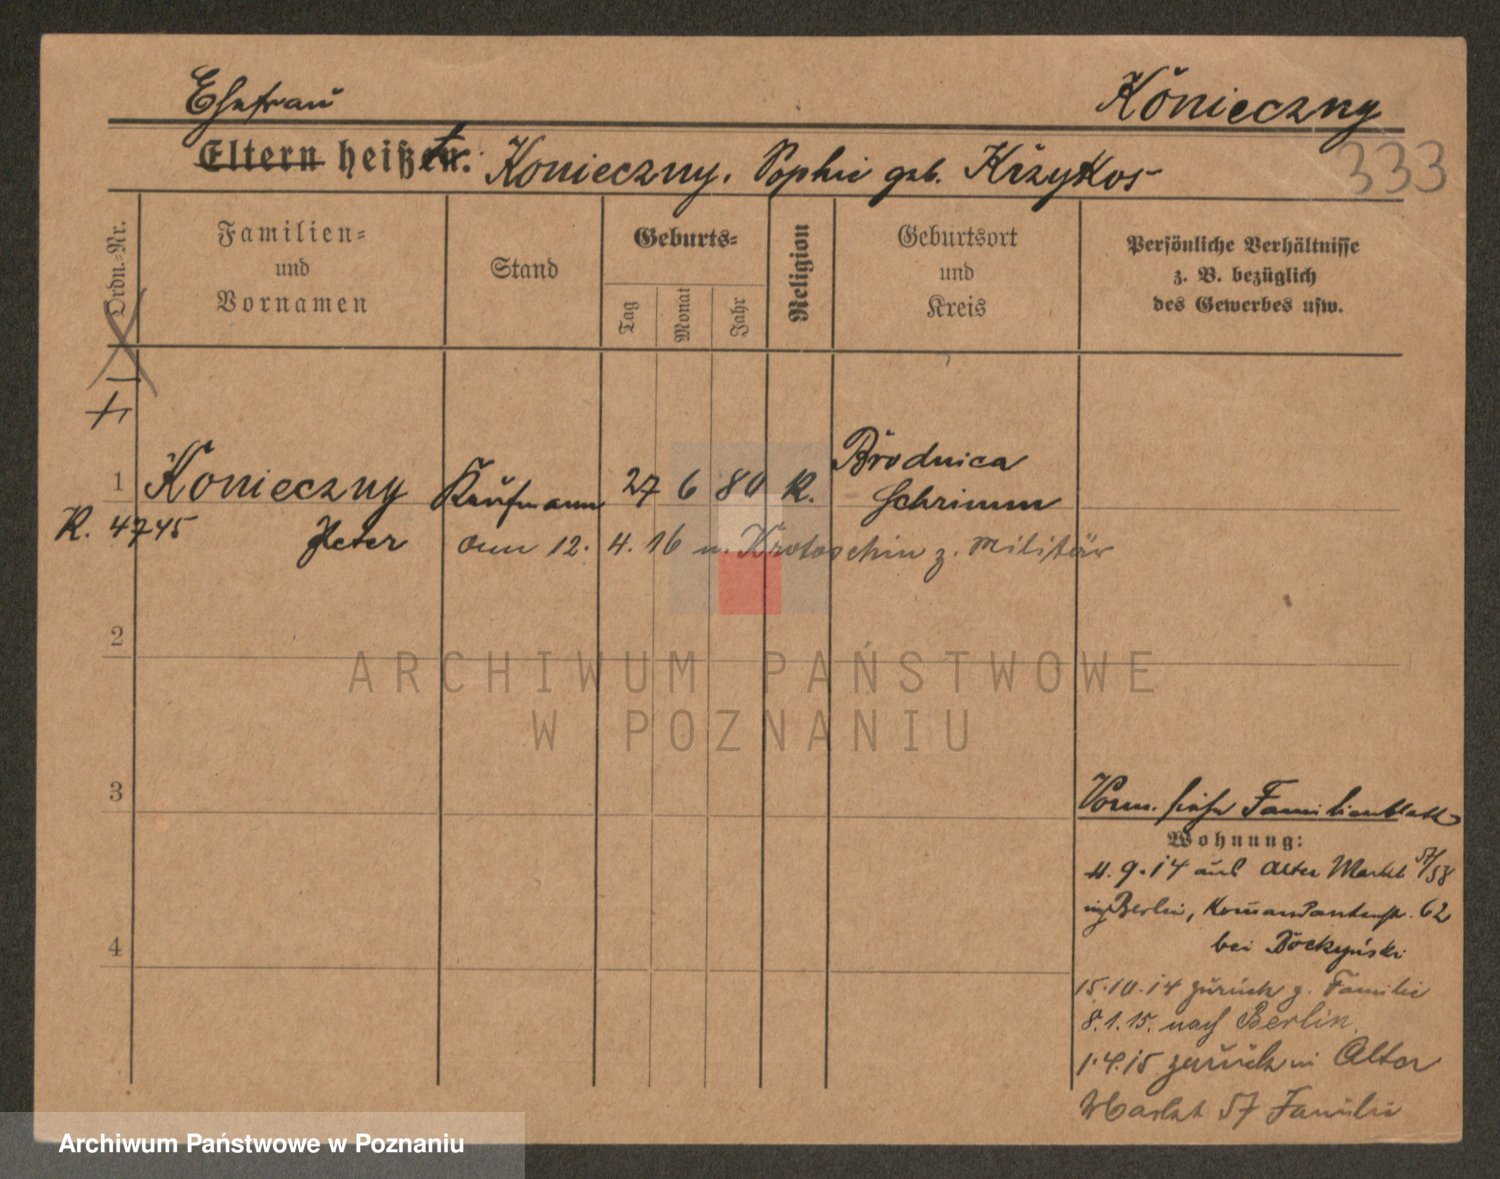 Ehefrau Konieczny
Eltern heißen: Konieczny, Sophie geb. Krzykos
333
Ordn.-Nr.
Familien-
und
Vornamen
Stand
Geburts-
Tag
Monat
Jahr
Religion
Geburtsort
und
Kreis
Persönliche Verhältnisse
z. B. bezüglich
des Gewerbes usw.
1 Konieczny Kaufmann 27 6 80 K. Brodnica
Schrimm
K. 4745 Peter am 12. 4. 16 n. Krotoschin z. Militär
2
ARCHIWUM PAŃSTWOWE
W POZNANIU
3
Vorm. siehe Familienblatt
Wohnung:
4. 9. 14 aus Alter Markt 57/58
Berlin, Komandantenstr. 62
4
bei
15. 10. 14 zurück z. Familie
8. 1. 15. nach Berlin.
1. 4. 15 zurück in Alter
Markt 57 Familie
Archiwum Państwowe w Poznaniu